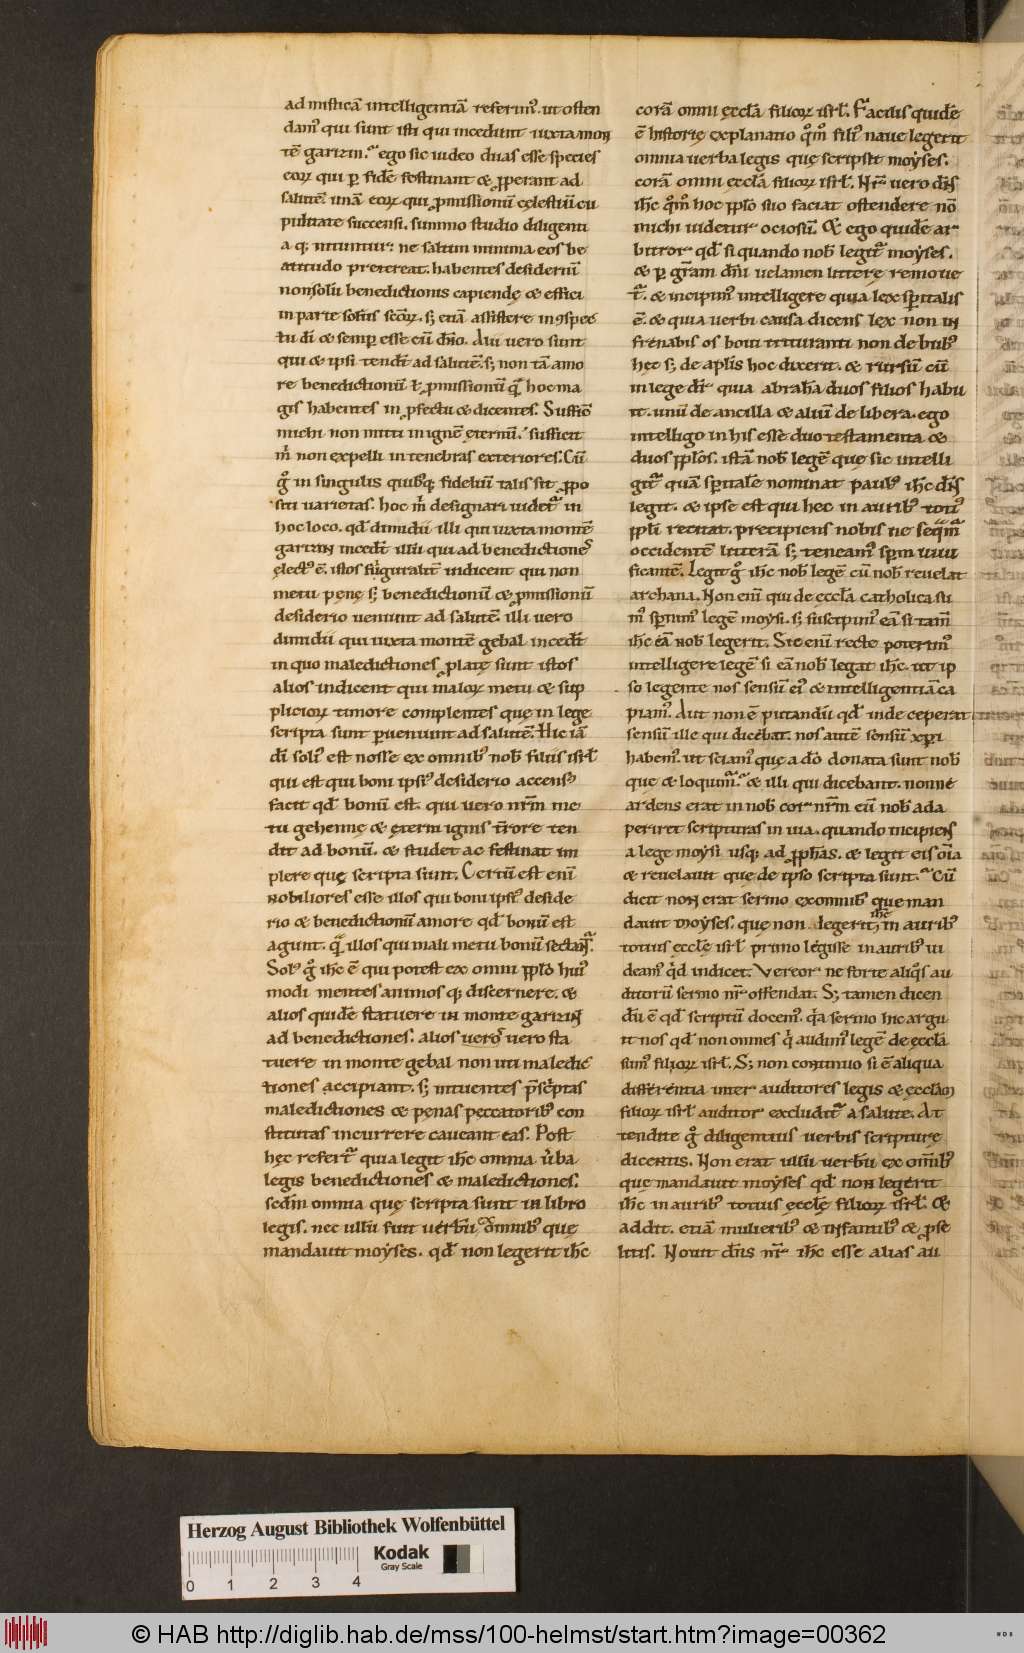 ad misticā intelligentiā referimꝰ. ut osten
damꝰ qui sunt isti qui incedunt iuxta mon
tē garizin. ego sic uideo duas esse species
eoꝝ qui ꝑ fidē festinant & ꝓperant ad
salutē. unā eoꝝ qui ꝓmissionū cęlestiū cu
piditate succensi. summo studio diligenti
a q; nituntur. ne saltim minima eos be
atitudo pretereat. habentes desideriū
non solū benedictionis capiendę & effici
in parte sortis scōꝝ. s; etiā assistere in ꝯspec
tu dī & semꝑ esse cū dn̄o. Alii uero sunt
qui & ipsi tendūt ad salutē. s; non tā amo
re benedictionū ł ꝓmissionū quā hoc ma
gis habentes in ꝓfectu & dicentes. Sufficit
michi non mitti in ignē ęternū. sufficit
m̄ non expelli in tenebras exteriores. Cū
gͦ in singulis quibꝰq; fideliū talis sit ꝓpo
siti uarietas. hoc m̄ designari uidetᷣ in
hoc loco. qd̄ dimidii illi qui iuxta montē
garizin incedūt illi qui ad benedictiones
ęlectꝰ ē. istos figuralit̄ indicent qui non
metu pęnę s; benedictionū & ꝓmissionū
desiderio ueniunt ad salutē. illi uero
dimidii qui iuxta montē gebal incedūt
in quo maledictiones ꝓlatę sunt istos
alios indicent qui maloꝝ metu & sup
plicioꝝ timore complentes quę in lege
scripta sunt ꝑueniunt ad salutē. Hic iā
dī solꝰ est nosse ex omnibꝰ nob̄ filiis isrł
qui est qui boni ipsiꝰ desiderio accensꝰ
facit qd̄ bonū est. qui uero nr̄m me
tu gehennę & ęterni ignis t̄rore ten
dit ad bonū. & studet ac festinat im
plere quę scripta sunt. Certū est enī
nobiliores esse illos qui boni ipsiꝰ deside
rio & benedictionū amore qd̄ bonū est
agunt. quā illos qui mali metu bonū sectantᷣ.
Solꝰ gͦ ih̄c ē qui potest ex omni ꝓplo huiꝰ
modi mentes animos q; discernere. &
alios quidē statuere in monte garizin
ad benedictiones. alios uero uero sta
tuere in monte gebal non uti maledic
tiones accipiant. s; intuentes p̄scͥptas
maledictiones & pęnas peccatoribꝰ con
stitutas incurrere caueant eas. Post
hęc refertᷣ quia legit ih̄c omnia ūba
legis benedictiones & maledictiones.
sedm̄ omnia quę scripta sunt in libro
legis. nec ullū fuit uerbū ex omnibꝰ quę
mandauit moyses. qd̄ non legerit ih̄c
corā omni ęccła filioꝝ isrł. Facilis quidē
ē historię explanatio quōm̄ filiꝰ naue legerit
omnia uerba legis quę scripsit moyses.
corā omni ęccła filioꝝ isrł. Nr̄ uero dn̄s
ih̄c quōm̄ hoc ꝓplo suo faciat ostendere nō
michi uidetur ociosū. & ego quidē ar
bitror qd̄ si quando nob̄ legitᷣ moyses.
& ꝑ grām dn̄i uelamen litterę remoue
tᷣ. & incipimꝰ intelligere quia lex spiritalis
ē. & quia uerbi causa dicens lex non in
frenabis os boui trituranti non de bubꝰ
hęc s; de aplis hoc dixerit. & rursū cū
in lege dr̄ quia abrahā duos filios habu
it. unū de ancilla & aliū de libera. ego
intelligo in his esse duo testamenta &
duos pplos. istā nob̄ legē quę sic intelli
gitᷣ quā spiritalē nominat paulꝰ ih̄c dn̄s
legit. & ipse est qui hec in auribꝰ totiꝰ
ppli recitat. precipiens nobis ne sequamᷣ
occidentē litterā s; teneamꝰ spm uiui
ficantē. Legit gͦ ih̄c nob̄ legē cū nob̄ reuelat
archana. Non enī qui de ęccła catholica su
mꝰ spernimꝰ legē moysi. s; suscipimꝰ eā si tam̄
ih̄c eā nob̄ legerit. Sic enī recte poterimꝰ
intelligere legē si eā nob̄ legat ih̄c. ut ip
so legente nos sensū eiꝰ & intelligentiā ca
piamꝰ. Aut non ē putandū qd̄ inde ceperat
sensū ille qui dicebat. nos autē sensū xp̄i
habemꝰ. ut sciamꝰ quę a dō donata sunt nob̄
que & loquimᷣ. & illi qui dicebant. nonne
ardens erat in nob̄ cor nr̄m cū nob̄ ada
periret scripturas in uia. quando incipiens
a lege moysi usq; ad ꝓph̄as. & legit eis oīa
& reuelauit que de ipso scripta sunt. Cū
dicit non erat sermo ex omnibꝰ quę man
dauit moyses. quę non legerit ih̄c in auribꝰ
totius ęcclę isrł primo legisse in auribꝰ ui
deamꝰ qͥd indicet. Vereor ne forte aliqͦs au
ditorū sermo nr̄ offendat. S; tamen dicen
dū ē qd̄ scriptū docemꝰ. qͥa sermo hic argu
it nos qd̄ non omnes qͥ audimꝰ legē de ęccła
sumꝰ filioꝝ isrł. S; non continuo si ē aliqua
differentia inter auditores legis & ęcclam
filioꝝ isrł auditor excluditᷣ a salute. At
tendite gͦ diligentius uerbis scripturę
dicentis. Non erat ullū uerbū ex om̄ibꝰ
quę mandauit moyses qd̄ non legerit
ih̄c in auribꝰ totius ęcclę filioꝝ isrł. &
addit. etiā mulieribꝰ & infantibꝰ & ꝓse
litis. Nouit dn̄s nr̄ ih̄c esse alias au
Herzog August Bibliothek Wolfenbüttel
Kodak
Gray Scale
0 1 2 3 4
© HAB http://diglib.hab.de/mss/100-helmst/start.htm?image=00362